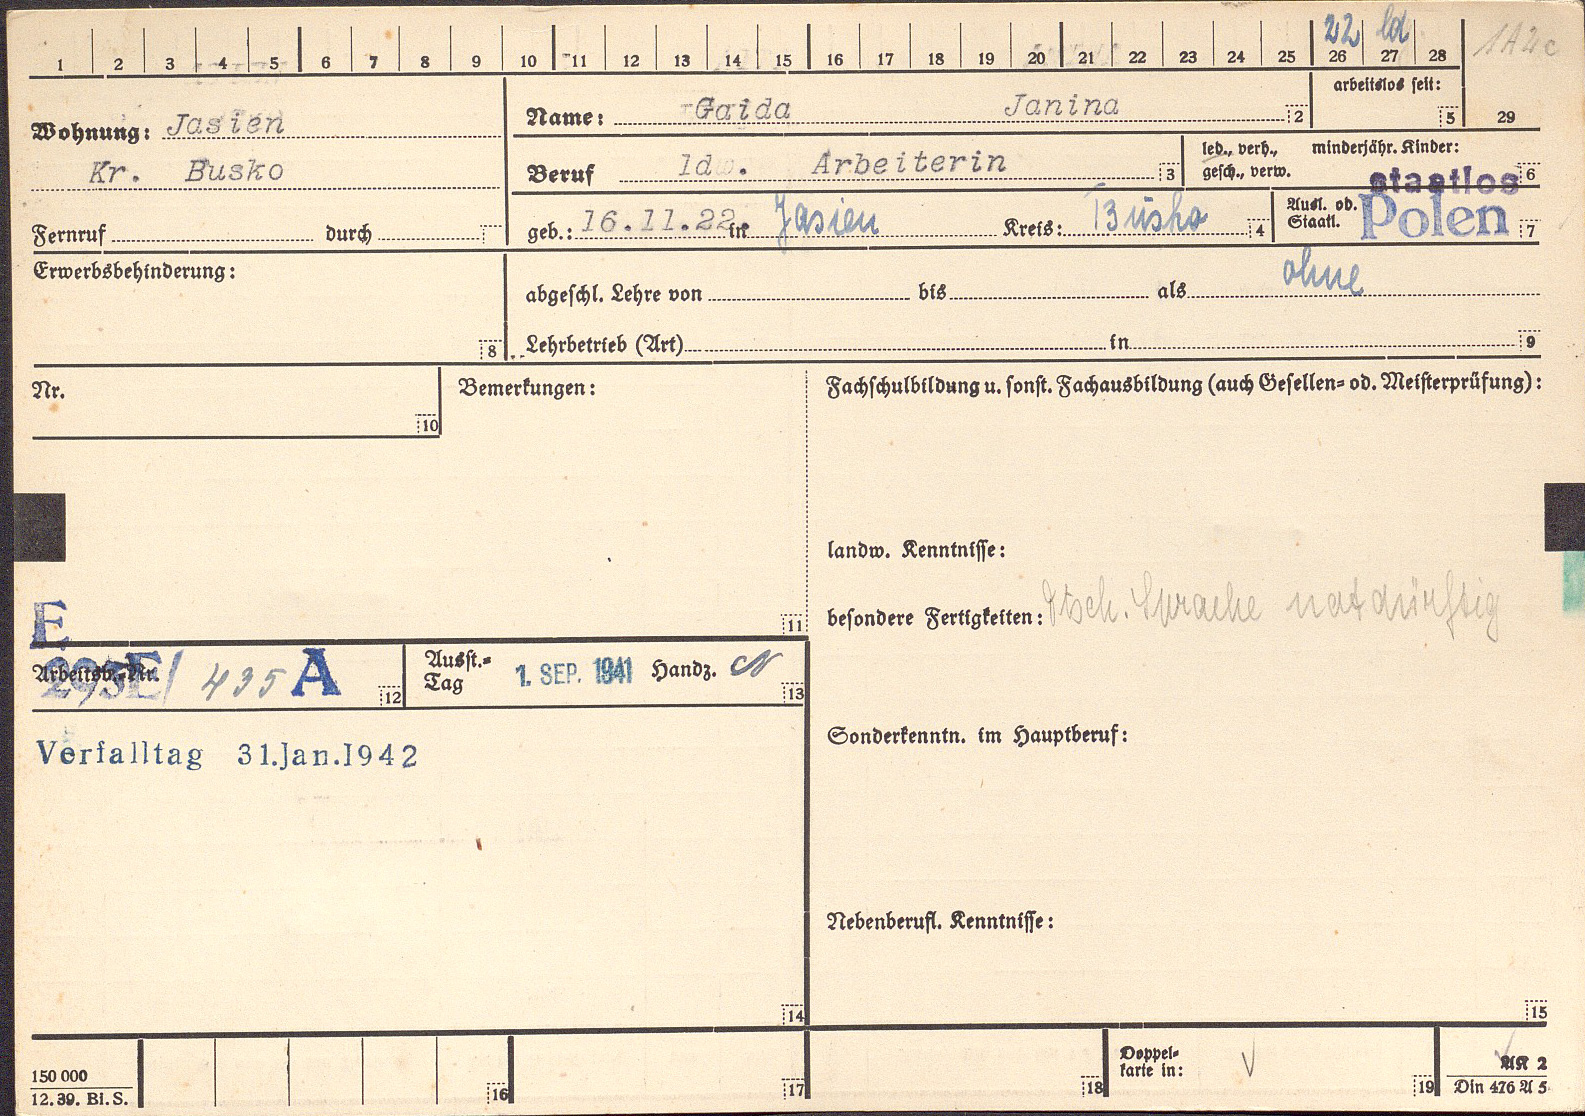 22 ld
1 2 3 4 5 6 7 8 9 10 11 12 13 14 15 16 17 18 19 20 21 22 23 24 25 26 27 28
1A2c
arbeitslos seit:
5
29
Wohnung: Jasien
Kr. Busko
Name: Gaida Janina 2
Beruf ldw. Arbeiterin 3
led., verh.,
gesch., verw.
minderjähr. Kinder:
6
Fernruf durch 7
geb.: 16.11.22 in Jasien Kreis: Busko 4
Ausl. od.
Staatl.
staatlos
Polen
7
Erwerbsbehinderung:
8
abgeschl. Lehre von bis als ohne
Lehrbetrieb (Art) in 9
Nr.
10
Bemerkungen:
11
Fachschulbildung u. sonst. Fachausbildung (auch Gesellen- od. Meisterprüfung):
landw. Kenntnisse:
besondere Fertigkeiten: Dtsch. Sprache notdürftig
E
Arbeitsb.-Nr.
293E/ 435 A
12
Ausst.-
Tag
1. SEP. 1941
Handz.
13
Verfalltag 31.Jan.1942
14
Sonderkenntn. im Hauptberuf:
Nebenberufl. Kenntnisse:
15
150 000
12. 39. Bl. S.
16
17
18
Doppel-
karte in:
19
AK 2
Din 476 A 5